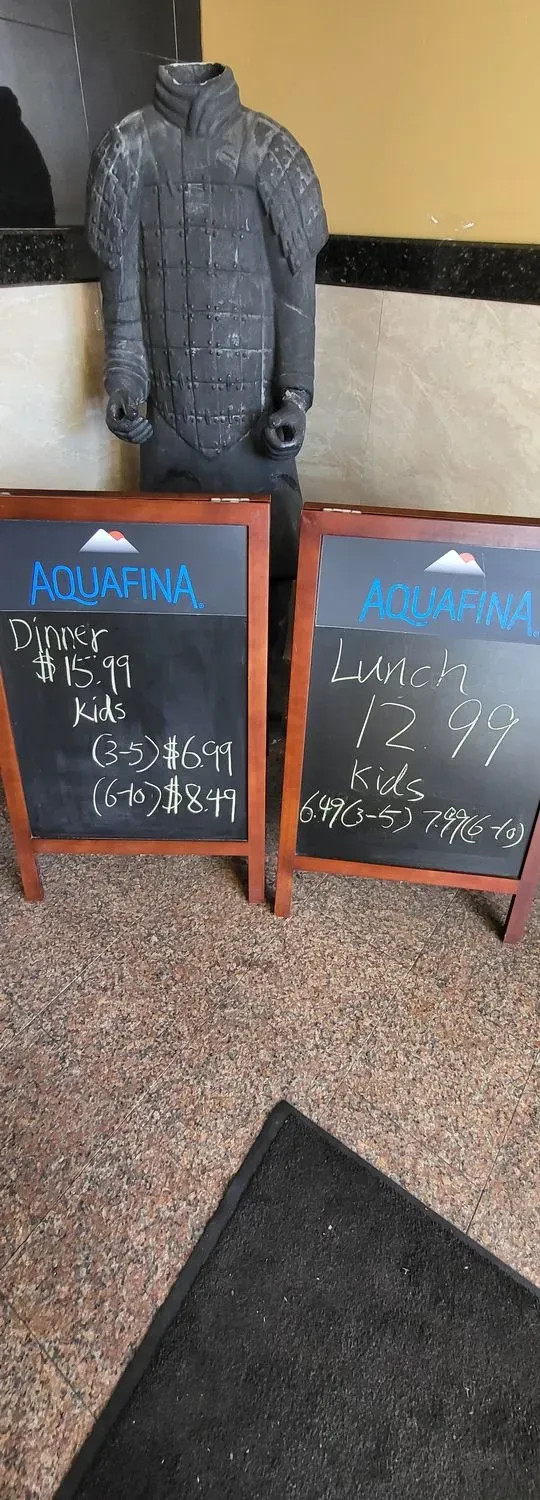 AQUAFINA
Dinner
$15.99
Kids
(3-5) $6.99
(6-10) $8.49
AQUAFINA
Lunch
12.99
Kids
6.49(3-5) 7.99(6-10)